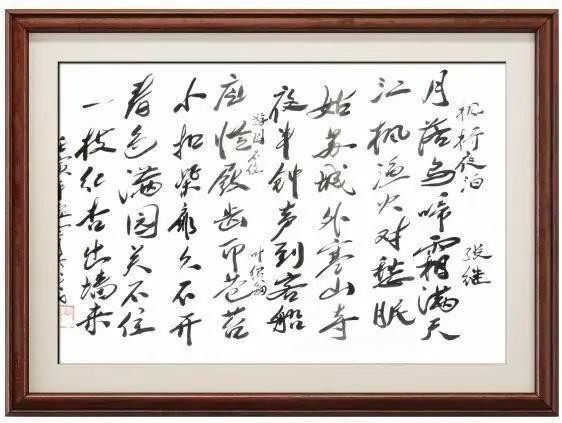 枫桥夜泊
张继
月落乌啼霜满天
江枫渔火对愁眠
姑苏城外寒山寺
夜半钟声到客船
游园不值
叶绍翁
应怜屐齿印苍苔
小扣柴扉久不开
春色满园关不住
一枝红杏出墙来
壬寅年